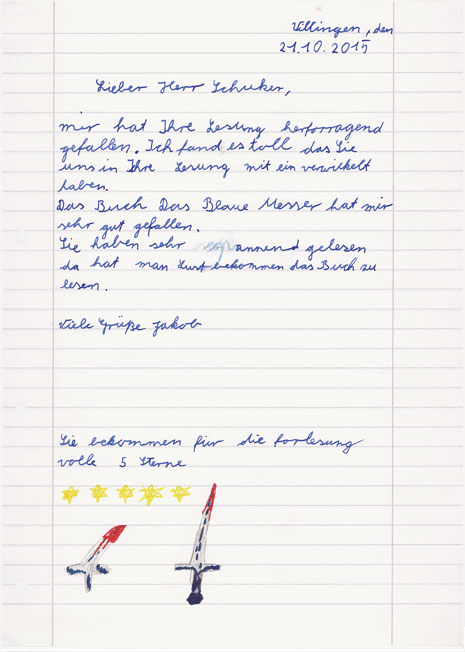 Villingen, den
21.10.2015
Lieber Herr Schuker,
mir hat Ihre Lesung herforragend
gefallen. Ich fand es toll das Sie
uns in Ihre Lesung mit ein verwikelt
haben.
Das Buch Das Blaue Messer hat mir
sehr gut gefallen.
Sie haben sehr spannend gelesen
da hat man Lust bekommen das Buch zu
lesen.
Viele Grüße Jakob
Sie bekommen für die forlesung
volle 5 Sterne